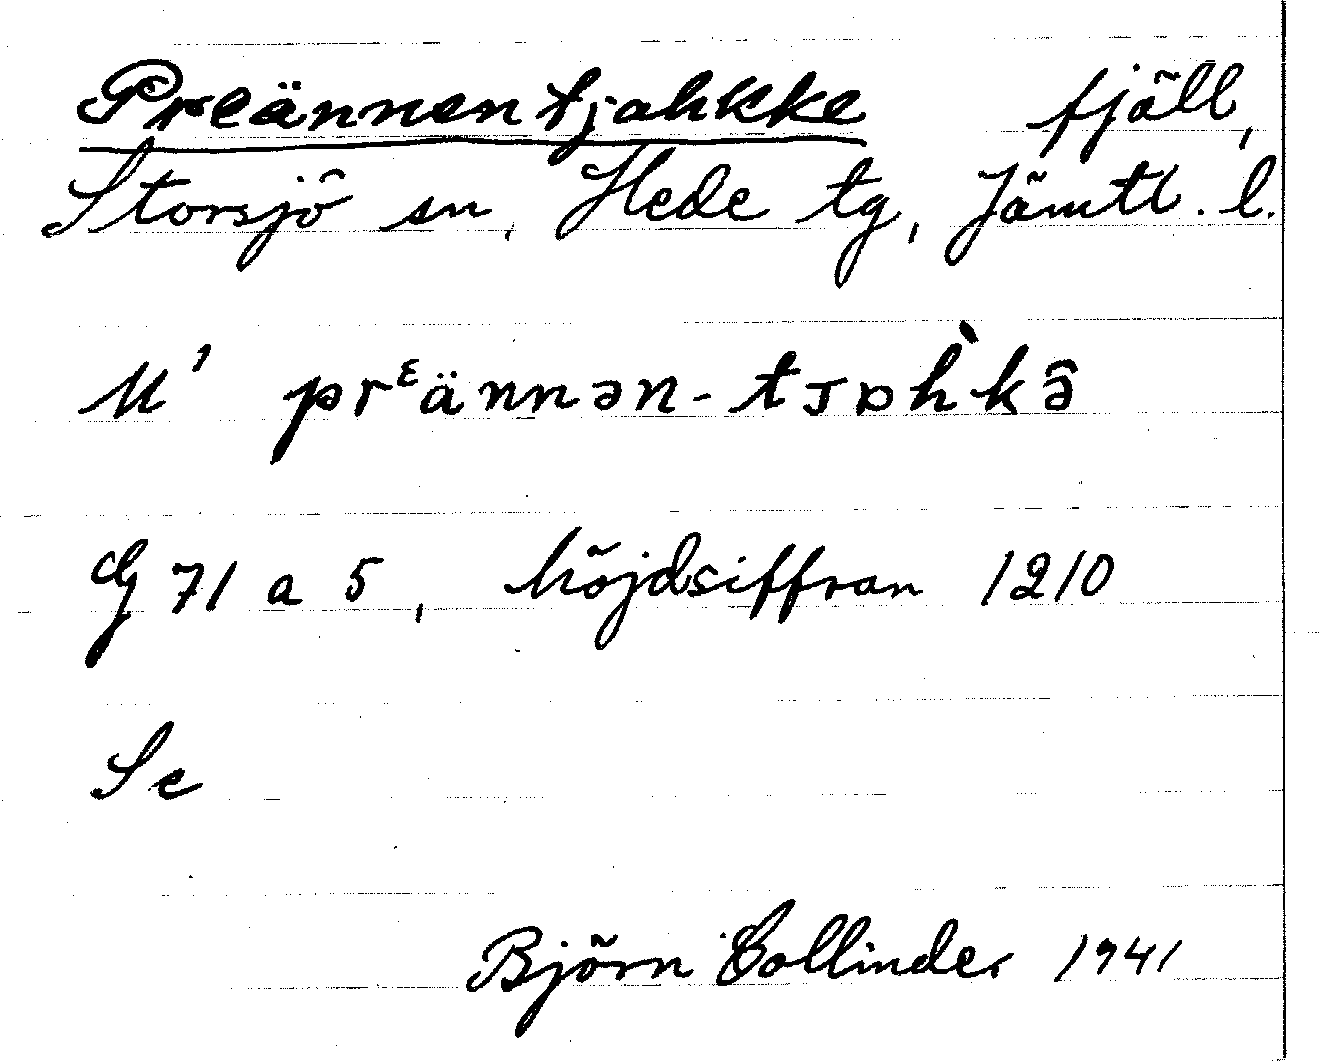 Preännentjahkke fjäll,
Storsjö sn, Hede tg, Jämtl. l.
M' prᵋännən-tᴊɒh̀kâ
G 71 a 5, höjdsiffran 1210
Se
Björn Collinder 1941